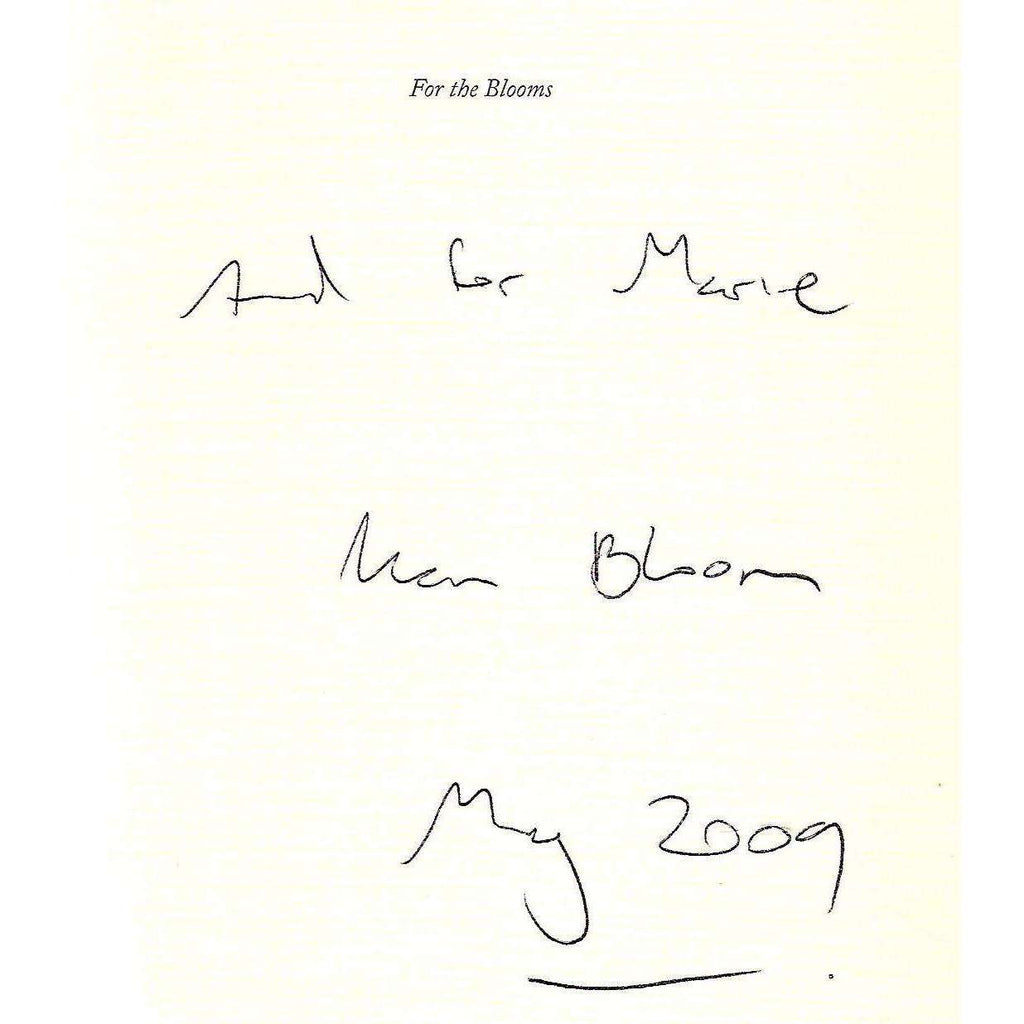 For the Blooms
And for Marie
Bloom
May 2009